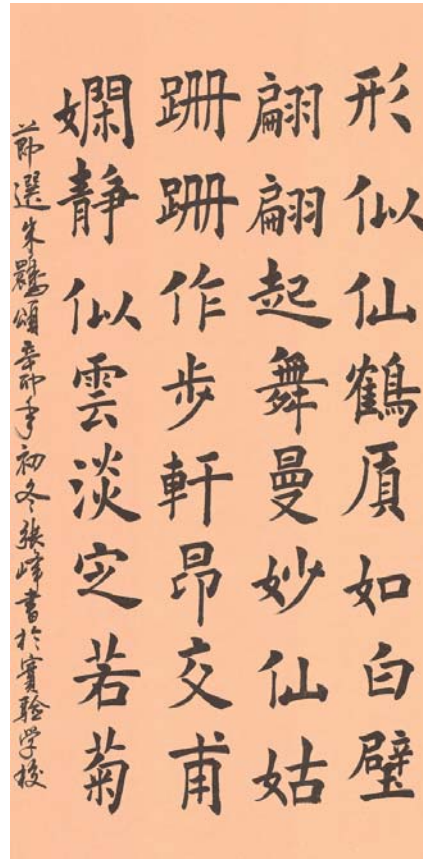 形似仙鶴質如白璧
翩翩起舞曼妙仙姑
跚跚作步軒昂交甫
嫻靜似雲淡定若菊
節選朱鷺頌辛卯年初冬張峰書於實驗学校